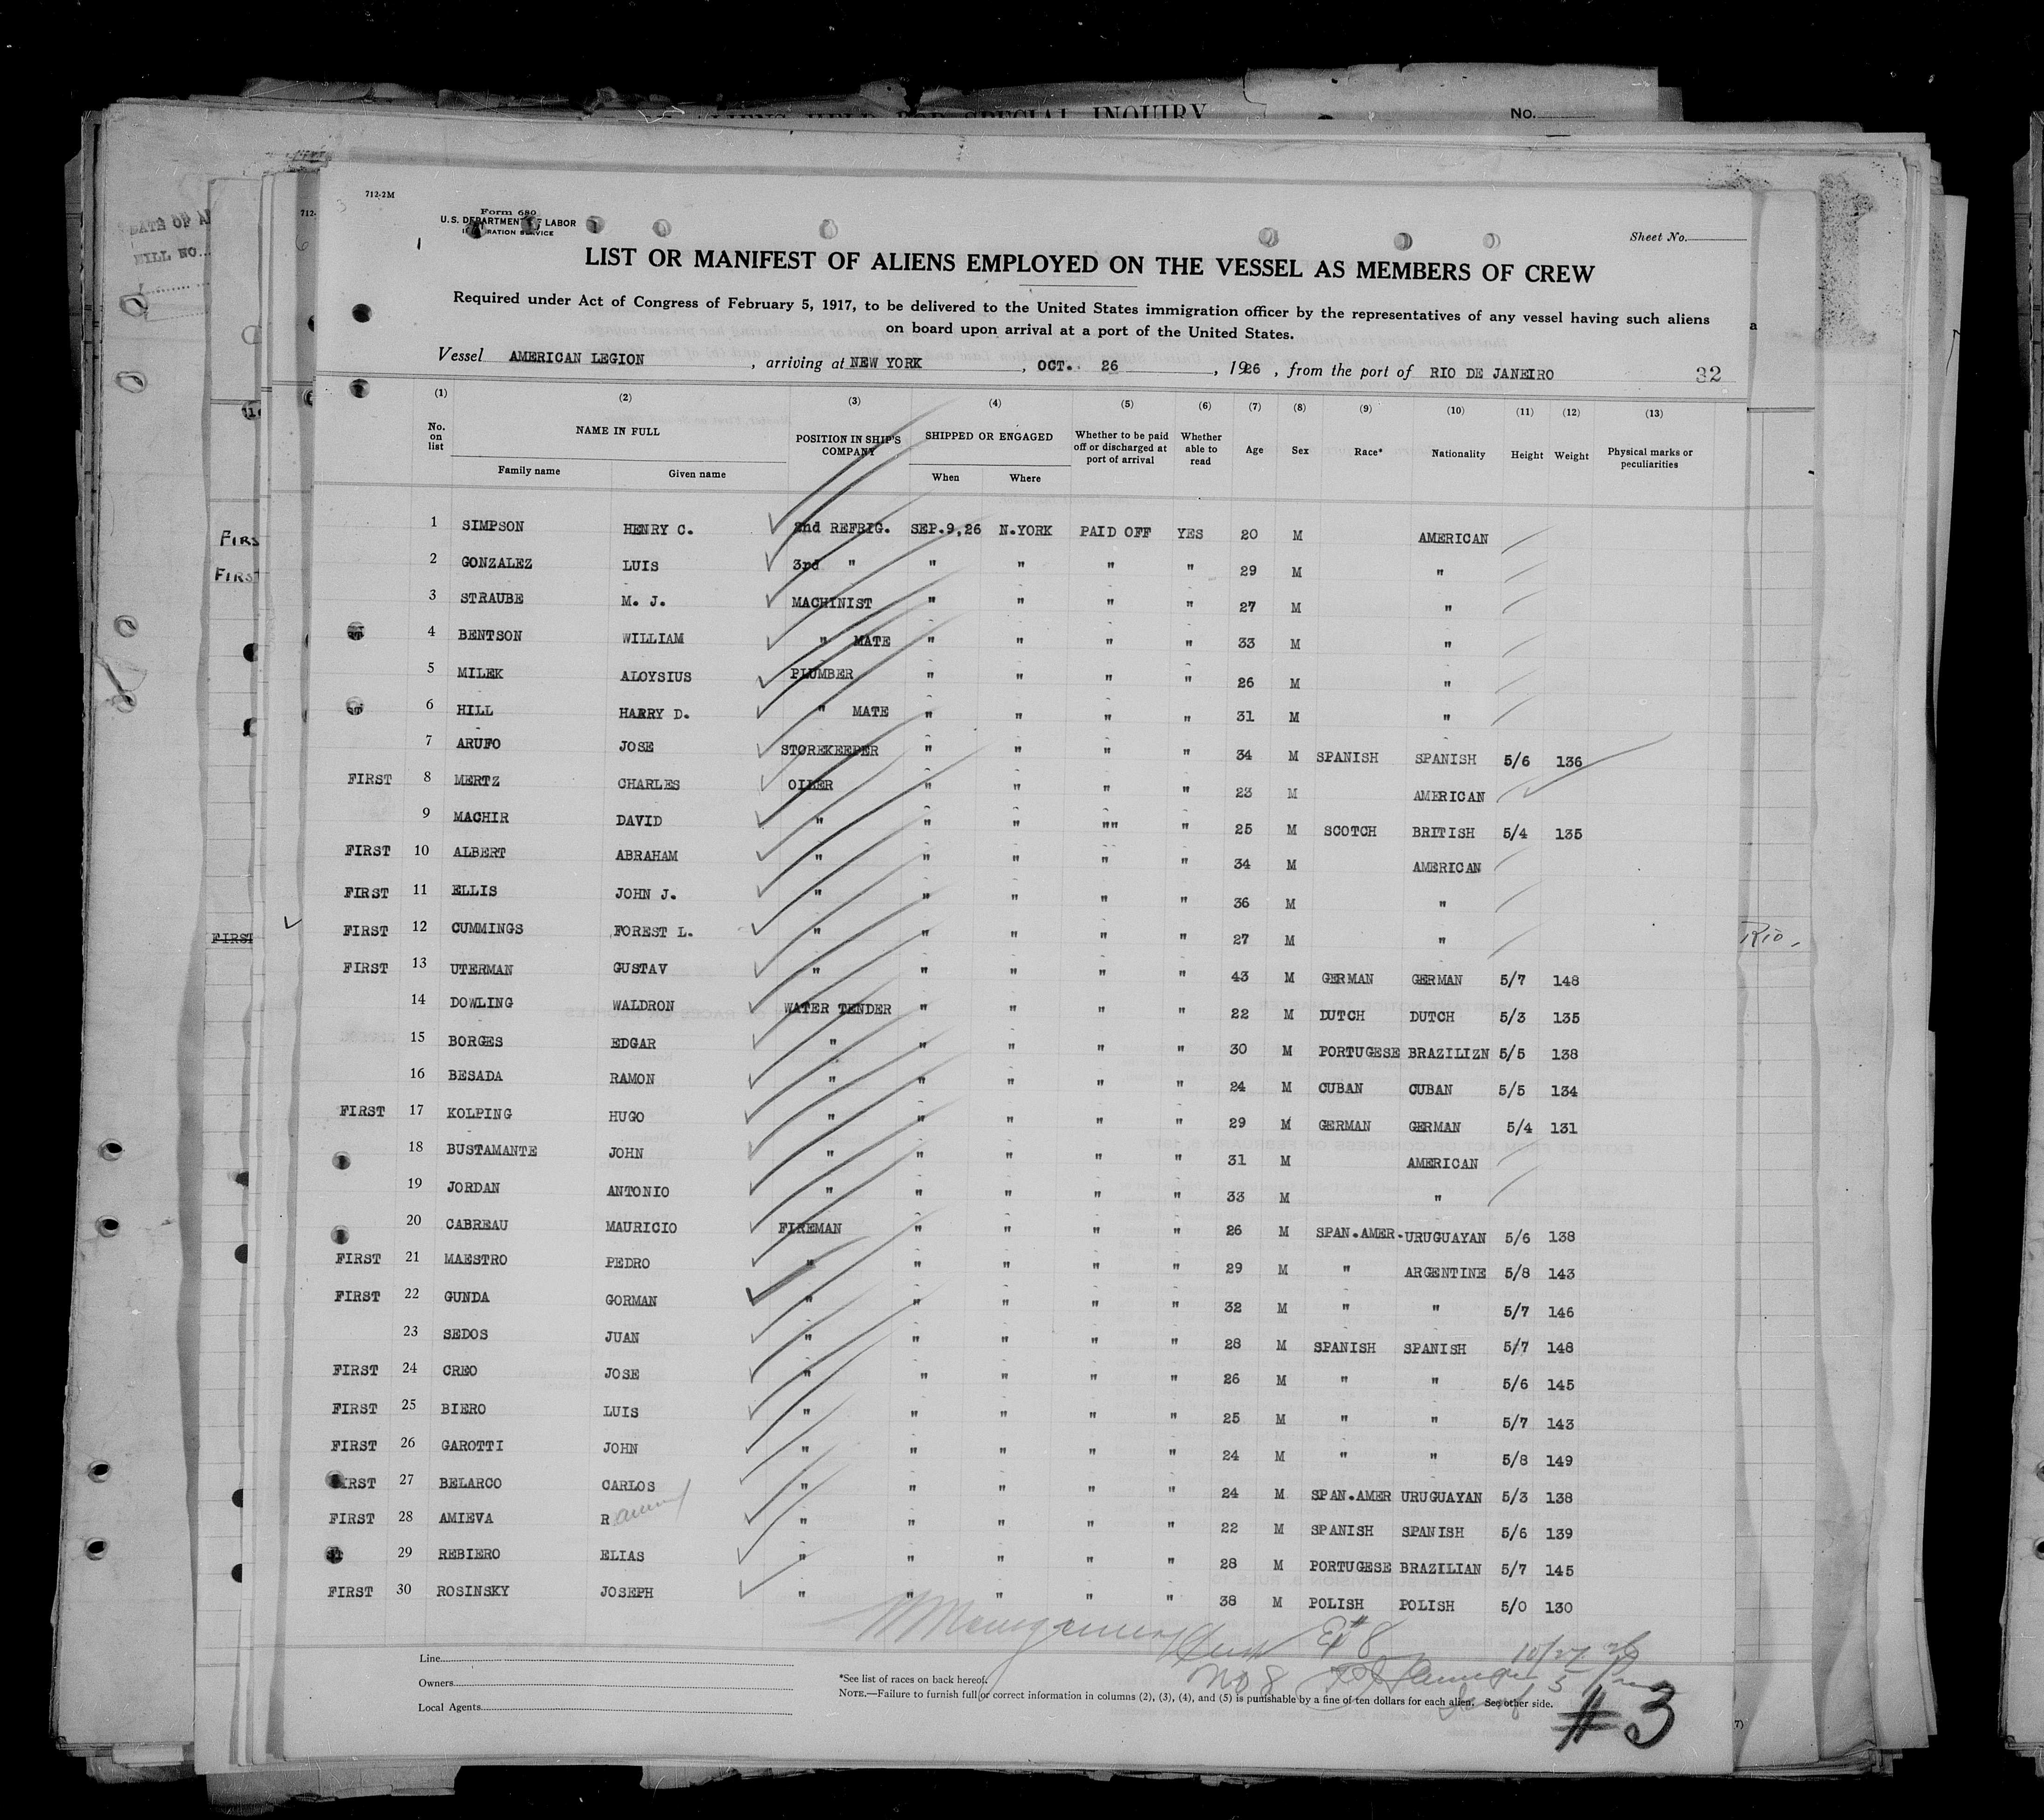 ALIENS HELD FOR SPECIAL INQUIRY
No.
712-2M
Form 680
U.S. DEPARTMENT OF LABOR
IMMIGRATION SERVICE
1
Sheet No.
LIST OR MANIFEST OF ALIENS EMPLOYED ON THE VESSEL AS MEMBERS OF CREW
Required under Act of Congress of February 5, 1917, to be delivered to the United States immigration officer by the representatives of any vessel having such aliens
on board upon arrival at a port of the United States.
Vessel AMERICAN LEGION , arriving at NEW YORK , OCT. 26 , 1926 , from the port of RIO DE JANEIRO 32
(1) (2) (3) (4) (5) (6) (7) (8) (9) (10) (11) (12) (13)
No. on list NAME IN FULL Family name Given name POSITION IN SHIP'S COMPANY SHIPPED OR ENGAGED When Where Whether to be paid off or discharged at port of arrival Whether able to read Age Sex Race* Nationality Height Weight Physical marks or peculiarities
1 SIMPSON HENRY C. 2nd REFRIG. SEP.9,26 N.YORK PAID OFF YES 20 M AMERICAN
2 GONZALEZ LUIS 3rd " " " " " 29 M "
3 STRAUBE M. J. MACHINIST " " " " 27 M "
4 BENTSON WILLIAM " MATE " " " " 33 M "
5 MILEK ALOYSIUS PLUMBER " " " " 26 M "
6 HILL HARRY D. " MATE " " " " 31 M "
7 ARUFO JOSE STOREKEEPER " " " " 34 M SPANISH SPANISH 5/6 136
FIRST 8 MERTZ CHARLES OILER " " " " 23 M AMERICAN
9 MACHIR DAVID " " " "" " 25 M SCOTCH BRITISH 5/4 135
FIRST 10 ALBERT ABRAHAM " " " " " 34 M AMERICAN
FIRST 11 ELLIS JOHN J. " " " " " 36 M "
FIRST 12 CUMMINGS FOREST L. " " " " " 27 M " Rio.
FIRST 13 UTERMAN GUSTAV " " " " " 43 M GERMAN GERMAN 5/7 148
14 DOWLING WALDRON WATER TENDER " " " " 22 M DUTCH DUTCH 5/3 135
15 BORGES EDGAR " " " " " 30 M PORTUGESE BRAZILIZN 5/5 138
16 BESADA RAMON " " " " " 24 M CUBAN CUBAN 5/5 134
FIRST 17 KOLPING HUGO " " " " " 29 M GERMAN GERMAN 5/4 131
18 BUSTAMANTE JOHN " " " " " 31 M AMERICAN
19 JORDAN ANTONIO " " " " " 33 M "
20 CABREAU MAURICIO FIREMAN " " " " 26 M SPAN.AMER. URUGUAYAN 5/6 138
FIRST 21 MAESTRO PEDRO " " " " " 29 M " ARGENTINE 5/8 143
FIRST 22 GUNDA GORMAN " " " " " 32 M " " 5/7 146
23 SEDOS JUAN " " " " " 28 M SPANISH SPANISH 5/7 148
FIRST 24 CREO JOSE " " " " " 26 M " " 5/6 145
FIRST 25 BIERO LUIS " " " " " 25 M " " 5/7 143
FIRST 26 GAROTTI JOHN " " " " " 24 M " " 5/8 149
FIRST 27 BELARCO CARLOS " " " " " 24 M SPAN.AMER URUGUAYAN 5/3 138
FIRST 28 AMIEVA R " " " " " 22 M SPANISH SPANISH 5/6 139
29 REBIERO ELIAS " " " " " 28 M PORTUGESE BRAZILIAN 5/7 145
FIRST 30 ROSINSKY JOSEPH " " " " " 38 M POLISH POLISH 5/0 130
Line
Owners
Local Agents
*See list of races on back hereof.
NOTE.—Failure to furnish full or correct information in columns (2), (3), (4), and (5) is punishable by a fine of ten dollars for each alien. See other side.
No 8
#3